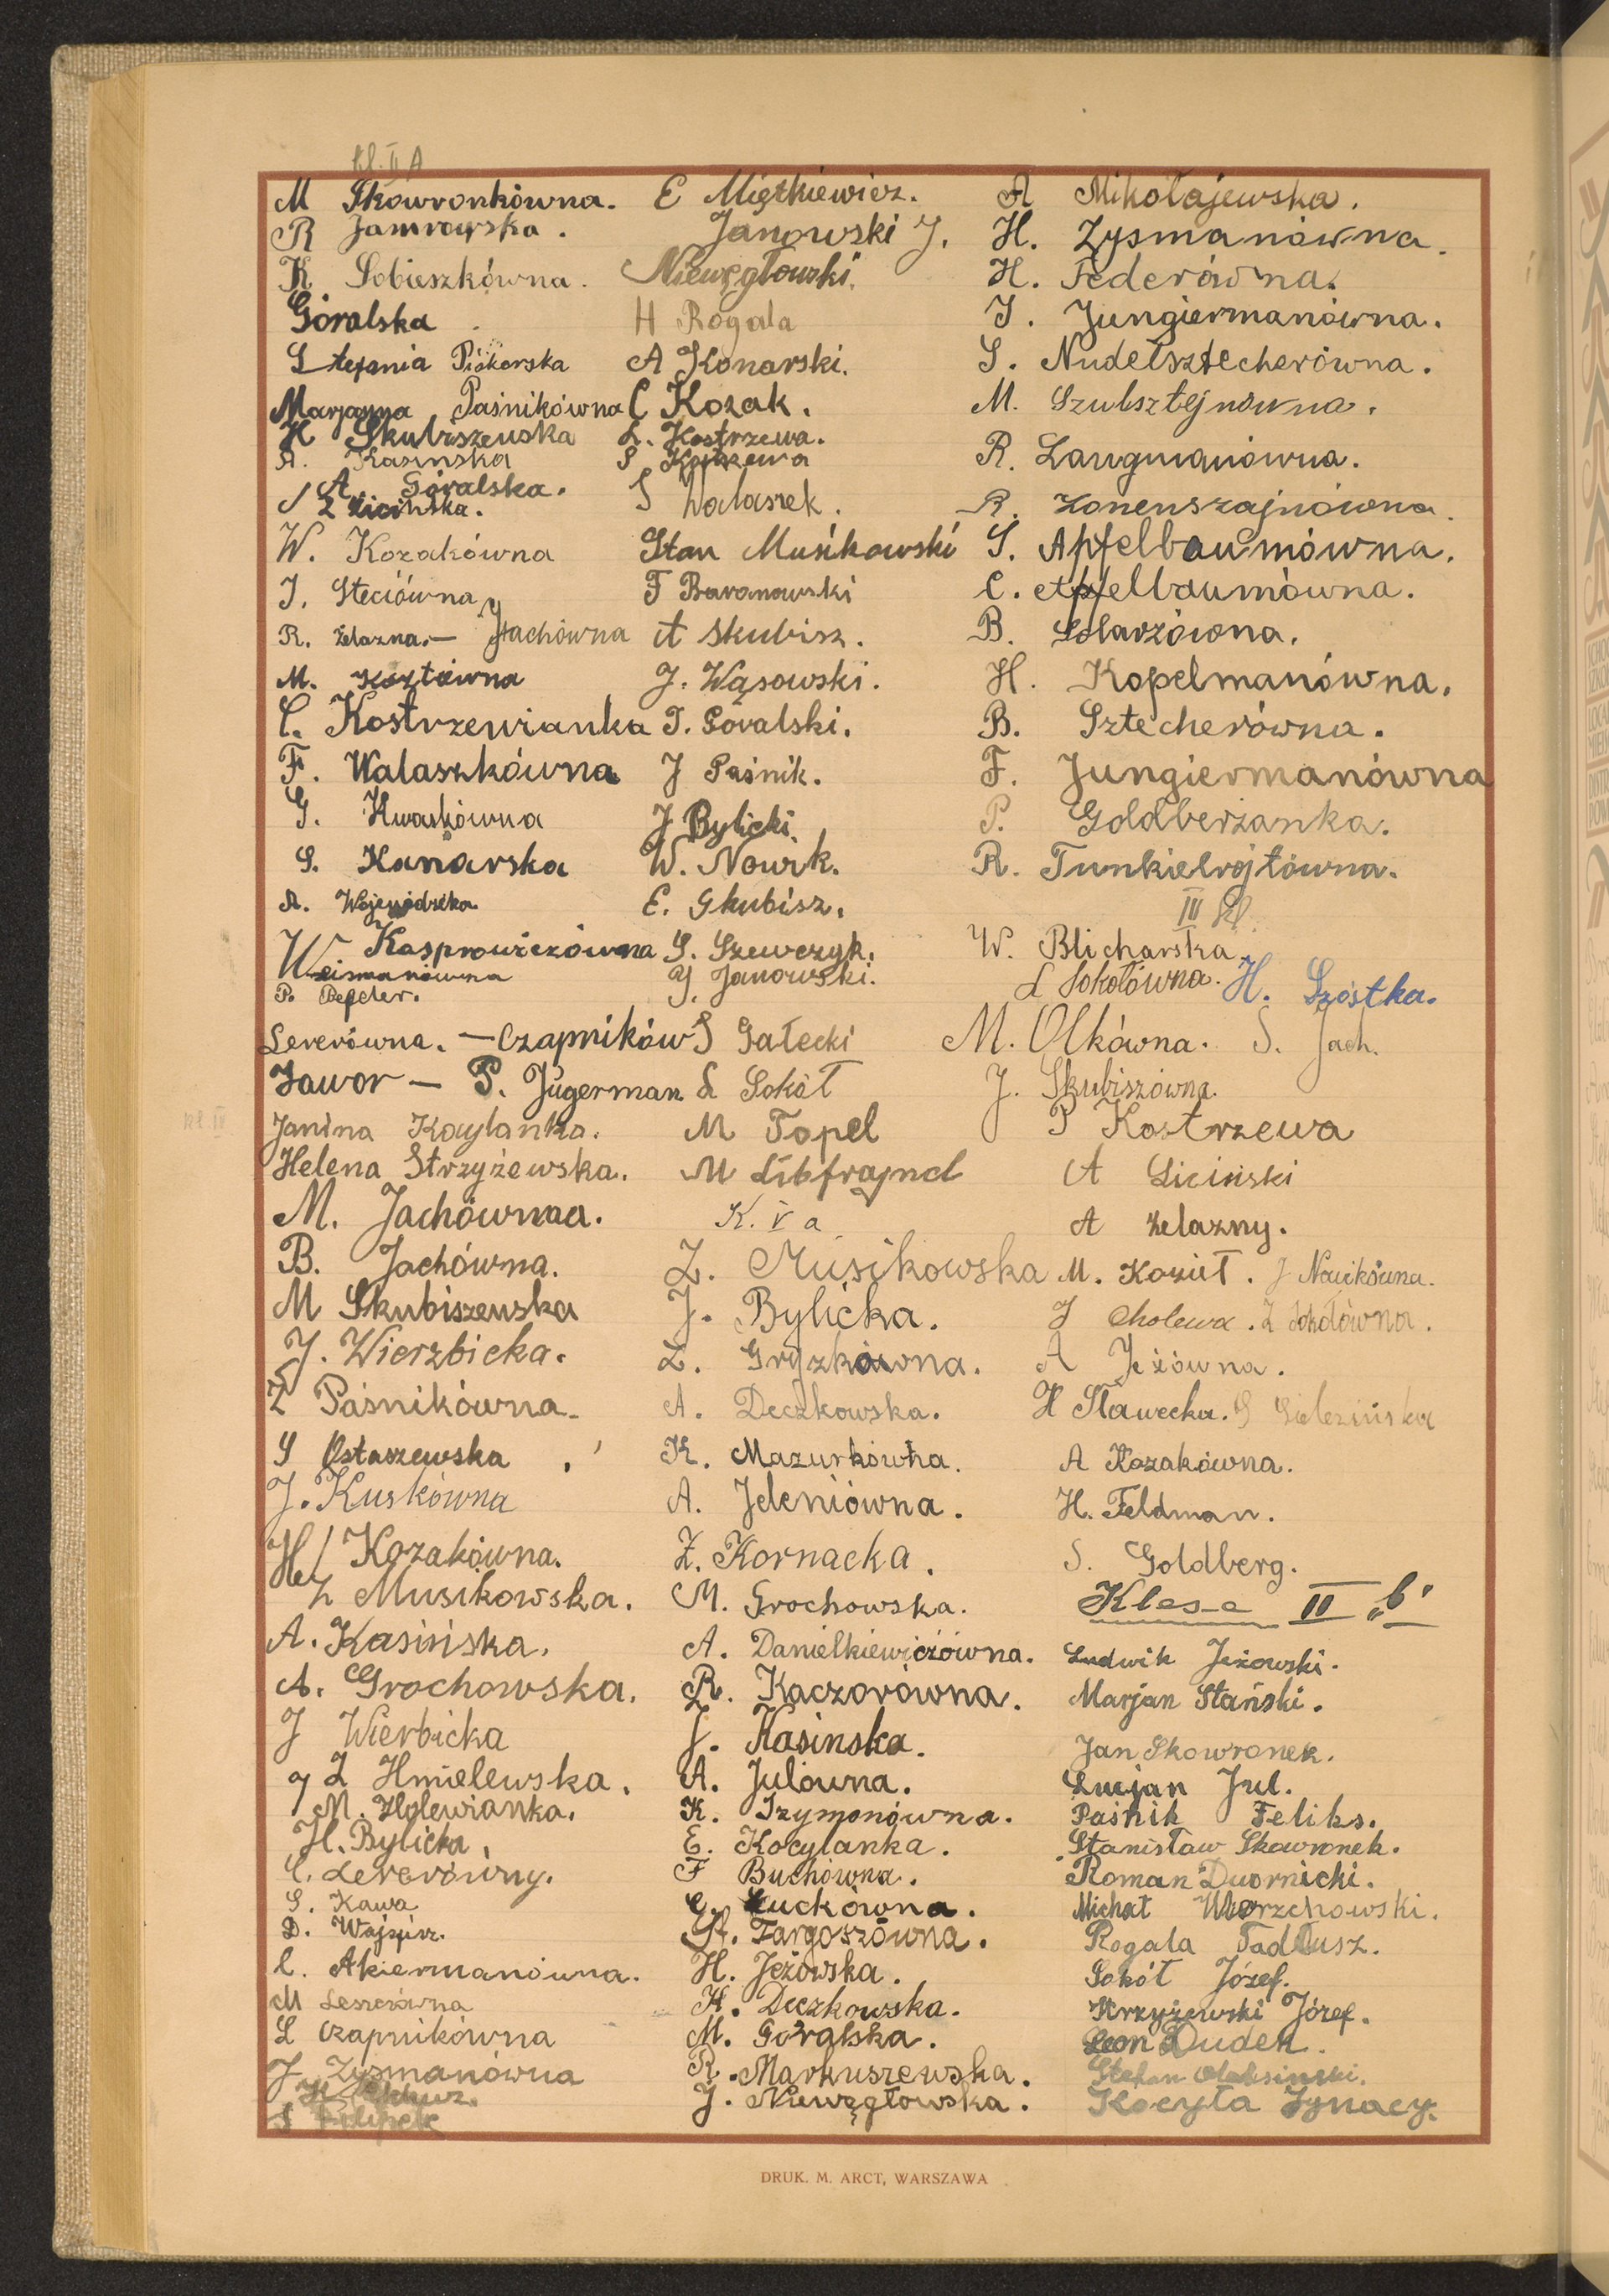 Kl. II A
M Skowronkówna.
R Jamrayska.
K Sobieszkówna.
Góralska
Stefania Piskorska
Marjanna Paśnikówna
H Skubiszewska
A. Kasinska
A. Góralska.
Z Licińska.
W. Kozakówna
J. Steciówna
R. Żelazna. — Jachówna
M. Koztówna
C. Kostrzewianka
F. Walaszkówna
G. Kwaskówna
S. Kanarska
A. Wojewódzka
W Kasprowiczówna
Weismanówna
P. Pefder.
Lererówna. — Czapników
Jawor — P. Jugerman
Kl. IV
Janina Kocylanka.
Helena Strzyżewska.
M. Jachówna.
B. Jachówna.
M Skubiszewska
J. Wierzbicka.
Z Paśnikówna.
S Ostaszewska
J. Kuskówna
He/ Kozakówna.
Z Musikowska.
A. Kasińska.
A. Grochowska.
J Wierbicka
Z Hmielewska.
M. Holewianka.
H. Bylicka,
C. Lererówny.
S. Kawa
D. Wajspir.
C. Akiermanówna.
M Leszerówna
L Czapnikówna
J. Zysmanówna
S Filipek
E Miętkiewicz.
Janowski J.
Niewęgłowski.
H Rogala
A Konarski.
C Kozak.
L. Kostrzewa.
S Kostrzewa
S Walaszek.
Stan Musikowski
F Baranowski
A Skubisz.
J. Wąsowski.
T. Góralski.
J Paśnik.
J Bylicki.
W. Nowik.
E. Skubisz.
S. Szewczyk.
J. Janowski.
S Gałecki
L Sokół
M Topel
M Libfrajnd
K. V a
Z. Musikowska
J. Bylicka.
Z. Gryzkówna.
A. Deczkowska.
K. Mazurkówna.
A. Jeleniówna.
Z. Kornacka.
M. Grochowska.
A. Danielkiewiczówna.
R. Kaczorówna.
J. Kasinska.
A. Julówna.
K. Szymonówna.
E. Kocylanka.
F Buchówna.
G. Łuckówna.
A. Targoszówna.
H. Jeżowska.
K. Deczkowska.
M. Góralska.
R. Markuszewska.
J. Niewęgłowska.
A Mikołajewska.
H. Zysmanówna.
H. Federówna.
J. Jungiermanówna.
S. Nudelsztecherówna.
M. Szulsztejnówna.
R. Langmanówna.
R. Zonenszajnówna.
S. Apfelbaumówna.
C. Apfelbaumówna.
B. Stolarzówna.
H. Kopelmanówna.
B. Sztecherówna.
F. Jungiermanówna
P. Goldberżanka.
R. Tunkielrojtówna.
III Kl.
W. Blicharska
L Sokołówna. H. Szóstka.
M. Olkówna. S. Jach.
J. Skubiszówna.
P Kostrzewa
A Liciński
A Żelazny.
M. Kozieł. J Nowikówna.
J Cholewa. Z Sokołówna.
A Jeżówna.
H Sławecka. G Gielezińska
A Kozakówna.
H. Feldman.
S. Goldberg.
Klasa II „b"
Ludwik Jeżowski.
Marjan Stański.
Jan Skowronek.
Lucjan Jul.
Paśnik Feliks.
Stanisław Skowronek.
Roman Dwornicki.
Michał Wierzchowski.
Rogala Tadeusz.
Sokół Józef.
Krzyżewski Józef.
Leon Dudek.
Stefan Oleksinski.
Kocyła Ignacy.
DRUK. M. ARCT, WARSZAWA